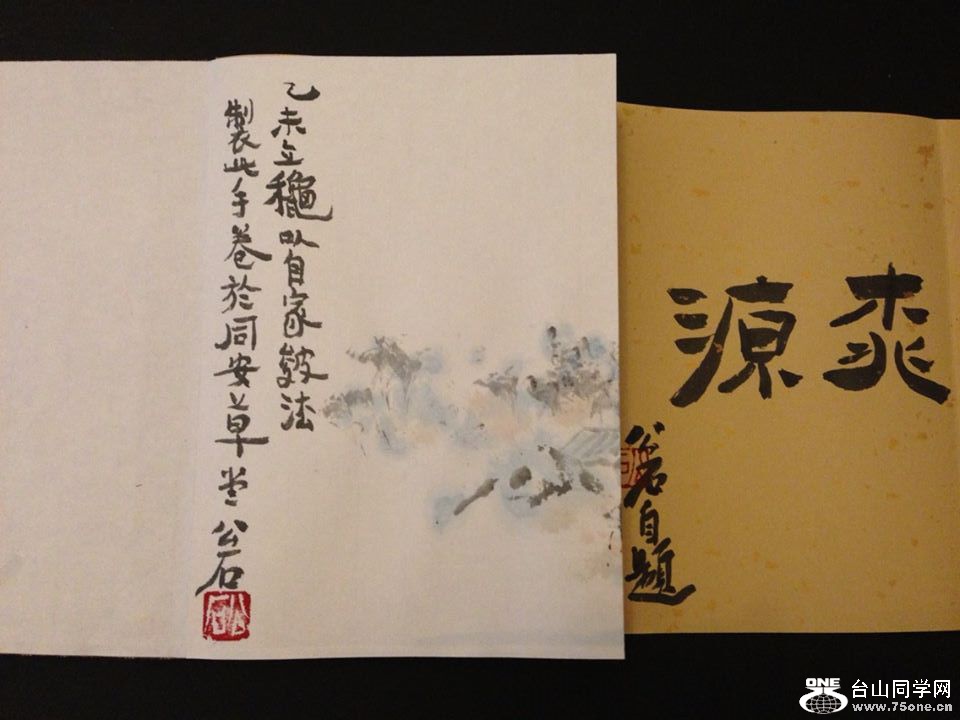 桼源
公石自題
乙未立穐以自家皴法
製此手卷於同安草堂公石
公石
ONE
台山同学网
www.75one.cn